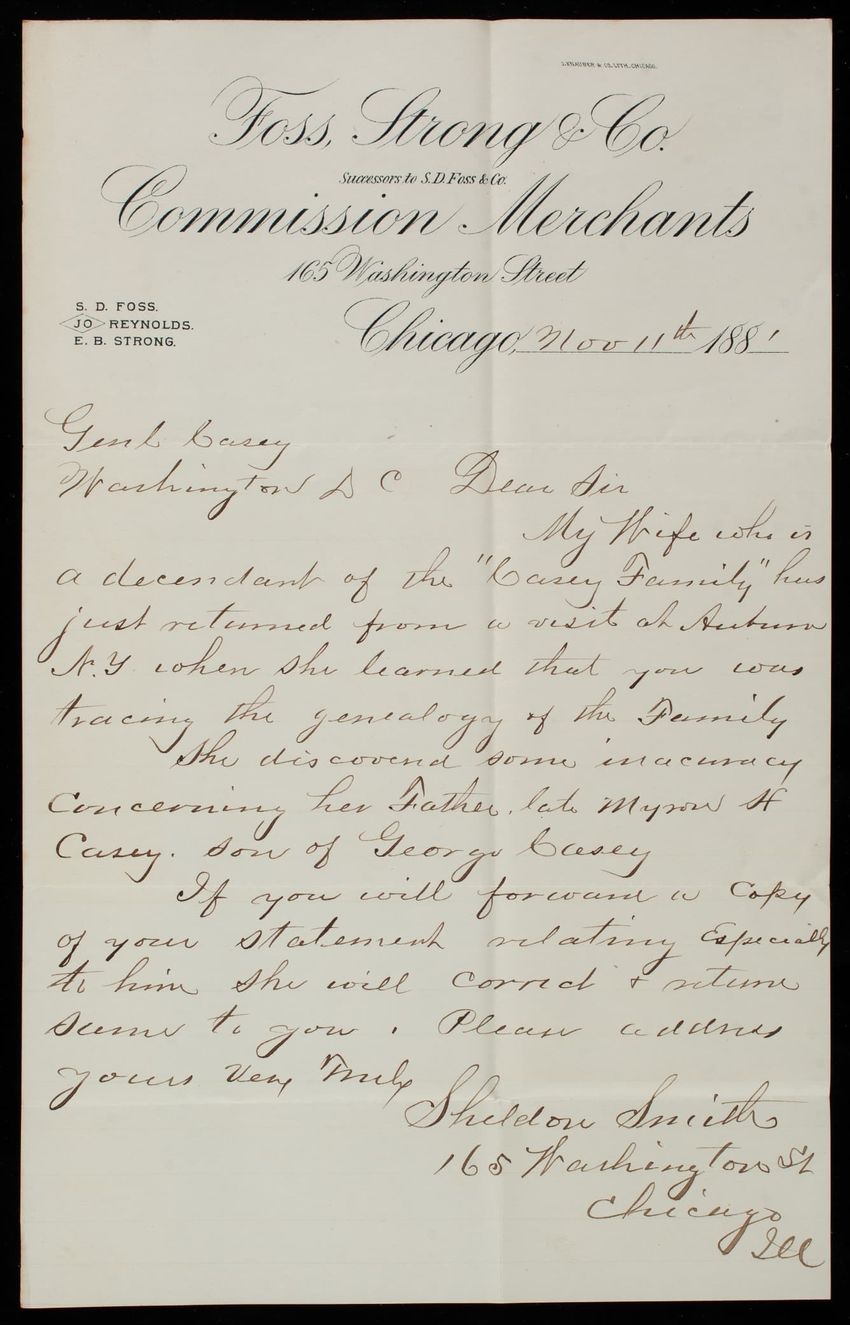 J.KNAUBER & CO. LITH. CHICAGO.
Foss, Strong & Co.
Successors to S.D. Foss & Co.
Commission Merchants
165 Washington Street
S. D. FOSS.
JO REYNOLDS.
E. B. STRONG.
Chicago, Nov 11th 1881
Genl Casey
Washington D C Dear Sir
My Wife who is
a decendant of the "Casey Family" has
just returned from a visit at Auburn
N.Y. when she learned that you was
tracing the genealogy of the Family
She discoverd some inacuracy
Concerning her Father, late Myron H
Casey. son of George Casey
If you will forward a Copy
of your statement relating Especially
to him she will correct & return
same to you. Please address
yours Very Truly
Sheldon Smith
165 Washington St
Chicago
Ill